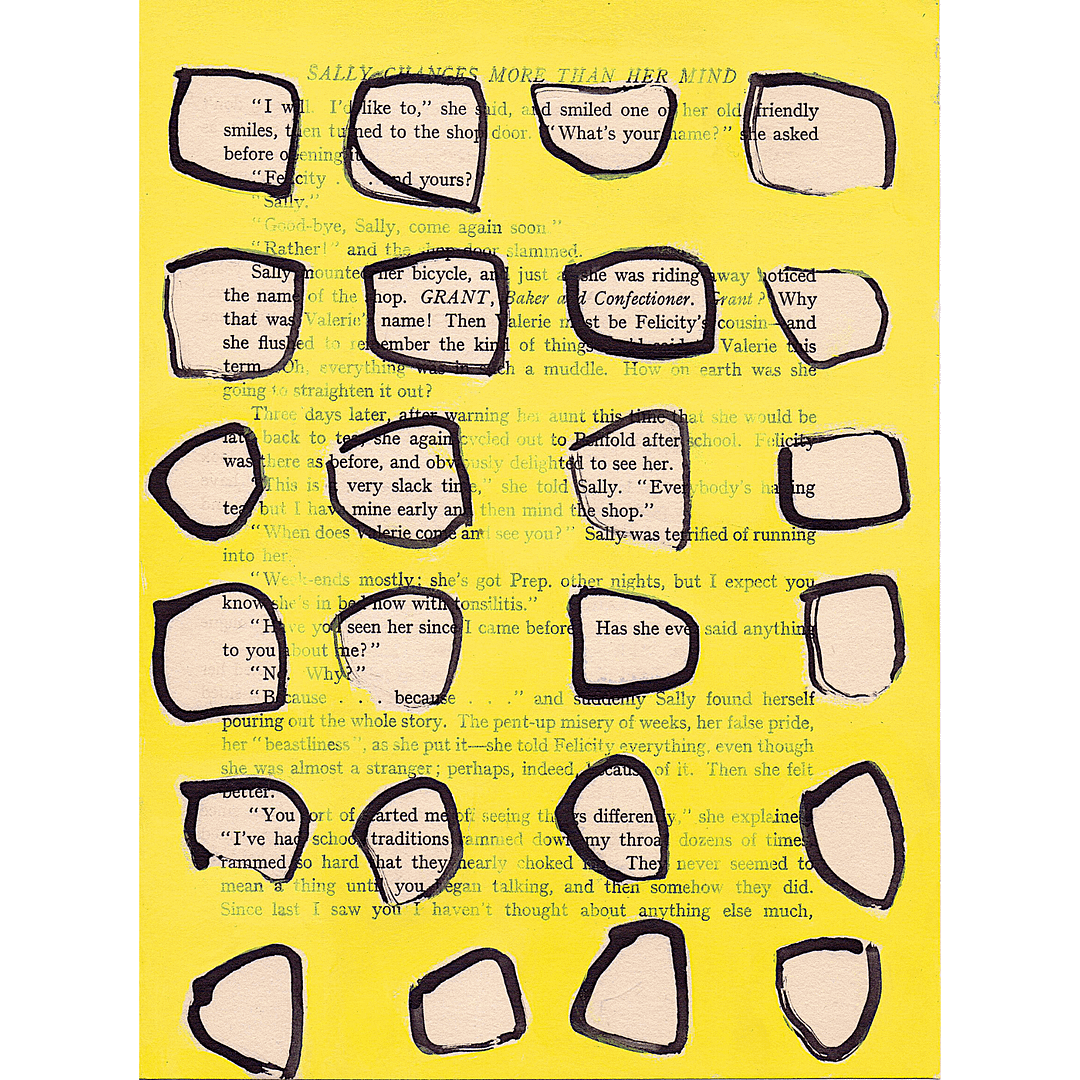 SALLY CHANGES MORE THAN HER MIND
"I will. I'd like to," she said, and smiled one of her old friendly
smiles, then turned to the shop door. "What's your name?" she asked
before opening it.
"Felicity . . . and yours?"
"Sally."
"Good-bye, Sally, come again soon."
"Rather!" and the shop door slammed.
Sally mounted her bicycle, and just as she was riding away noticed
the name of the shop. GRANT, Baker and Confectioner. Grant? Why
that was Valerie's name! Then Valerie must be Felicity's cousin—and
she flushed to remember the kind of things said Valerie this
term. Oh, everything was in such a muddle. How on earth was she
going to straighten it out?
Three days later, after warning her aunt this time that she would be
late back to tea, she again cycled out to Penfold after school. Felicity
was there as before, and obviously delighted to see her.
"This is a very slack time," she told Sally. "Everybody's having
tea but I have mine early and then mind the shop."
"When does Valerie come and see you?" Sally was terrified of running
into her.
"Week-ends mostly; she's got Prep. other nights, but I expect you
know she's in bed now with tonsilitis."
"Have you seen her since I came before? Has she ever said anything
to you about me?"
"No. Why?"
"Because . . . because . . ." and suddenly Sally found herself
pouring out the whole story. The pent-up misery of weeks, her false pride,
her "beastliness", as she put it—she told Felicity everything, even though
she was almost a stranger; perhaps, indeed, because of it. Then she felt
better.
"You sort of started me off seeing things differently," she explained.
"I've had school traditions rammed down my throat dozens of times
rammed so hard that they nearly choked me. They never seemed to
mean a thing until you began talking, and then somehow they did.
Since last I saw you I haven't thought about anything else much,